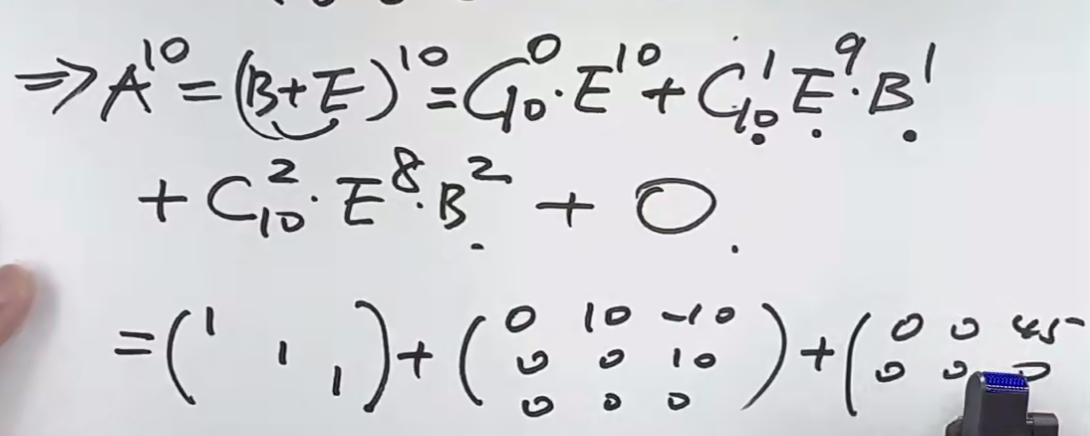 ⇒ A^10 = (B+E)^10 = C_10^0 · E^10 + C_10^1 E^9 · B^1
+ C_10^2 · E^8 · B^2 + O
= (1 1 1) + (0 10 -10 0 0 10 0 0 0) + (0 0 45 0 0 0